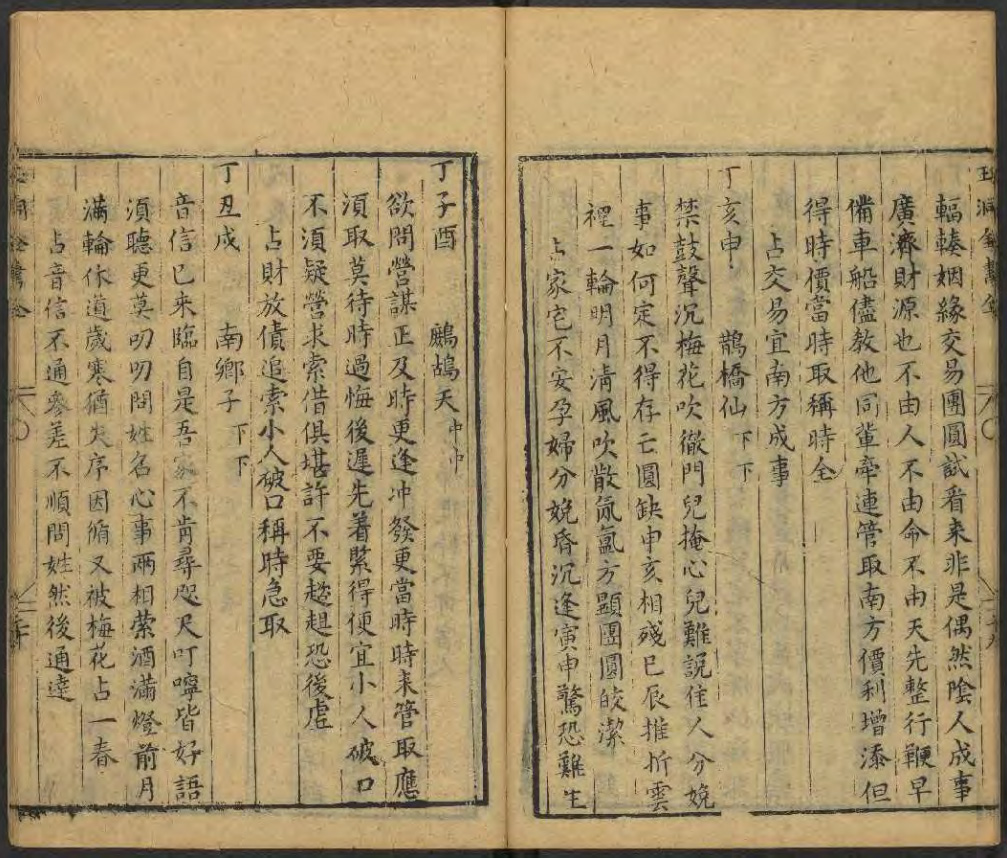 輻輳姻緣交易團圓試看来非是偶然陰人成事
廣濟財源也不由人不由命不由天先整行鞭早
備車船儘教他同輩牽連管取南方價利增添但
得時價當時取稱時全
占交易宜南方成事
丁亥申 鵲橋仙 下下
禁鼓聲沉梅花吹徹門兒掩心兒難說佳人分娩
事如何定不得存亡圓缺申亥相殘巳辰推折雲
裡一輪明月清風吹散氤氳方顯團圓皎潔
占家宅不安孕婦分娩昏沉逢寅申驚恐難生
丁子酉 鷓鴣天 中中
欲問營謀正及時更逢冲發更當時時来管取應
須取莫待時過悔後遲先着緊得便宜小人破口
不須疑營求索借俱堪許不要趦趄恐後虛
占財放債追索小人破口稱時急取
丁丑戌 南鄉子 下下
音信已来臨自是吾家不肯尋咫尺叮嚀皆好語
須聽更莫叨叨問姓名心事兩相縈酒滿燈前月
滿輪休道歲寒猶失序因循又被梅花占一春
占音信不通參差不順問姓然後通達